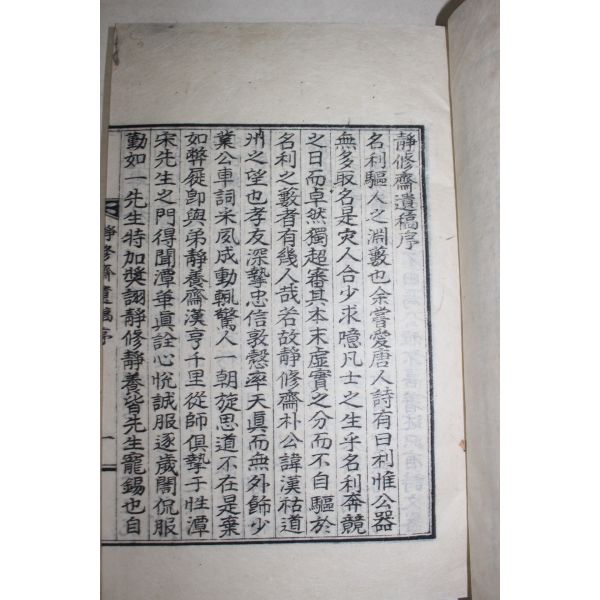 靜修齋遺稿序
名利驅人之淵藪也余嘗愛唐人詩有曰利惟公器
無多取名是灾人台少求噫凡士之生乎名利奔競
之日而卓然獨超審其本末虛實之分而不自驅於
名利之藪者有幾人哉若故靜修齋朴公諱漢祜道
州之望也孝友深摯忠信敦慤率天眞而無外飾少
業公車詞采夙成動輒驚人一朝旋思道不在是棄
如弊屣卽與弟靜養齋漢亨千里從師俱摯于性潭
宋先生之門得聞潭華眞詮心悅誠服逐歲誾侃服
勤如一先生特加奬詡靜修靜養皆先生寵錫也自
靜修齋遺稿序
一